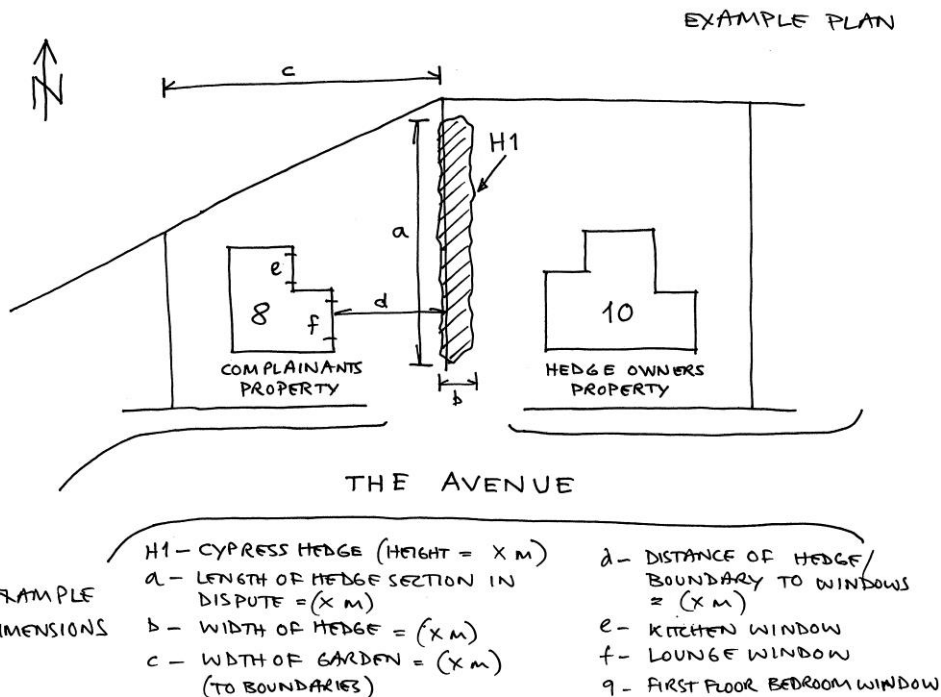 EXAMPLE PLAN
N
c
H1
a
e
d
8
f
10
COMPLAINANTS
PROPERTY
HEDGE OWNERS
PROPERTY
b
THE AVENUE
H1 - CYPRESS HEDGE (HEIGHT = X M)
a - LENGTH OF HEDGE SECTION IN
DISPUTE = (X M)
b - WIDTH OF HEDGE = (X M)
c - WDTH OF GARDEN = (X M)
(TO BOUNDARIES)
XAMPLE
IMENSIONS
d - DISTANCE OF HEDGE/
BOUNDARY TO WINDOWS
= (X M)
e - KITCHEN WINDOW
f - LOUNGE WINDOW
9 - FIRST FLOOR BEDROOM WINDOW